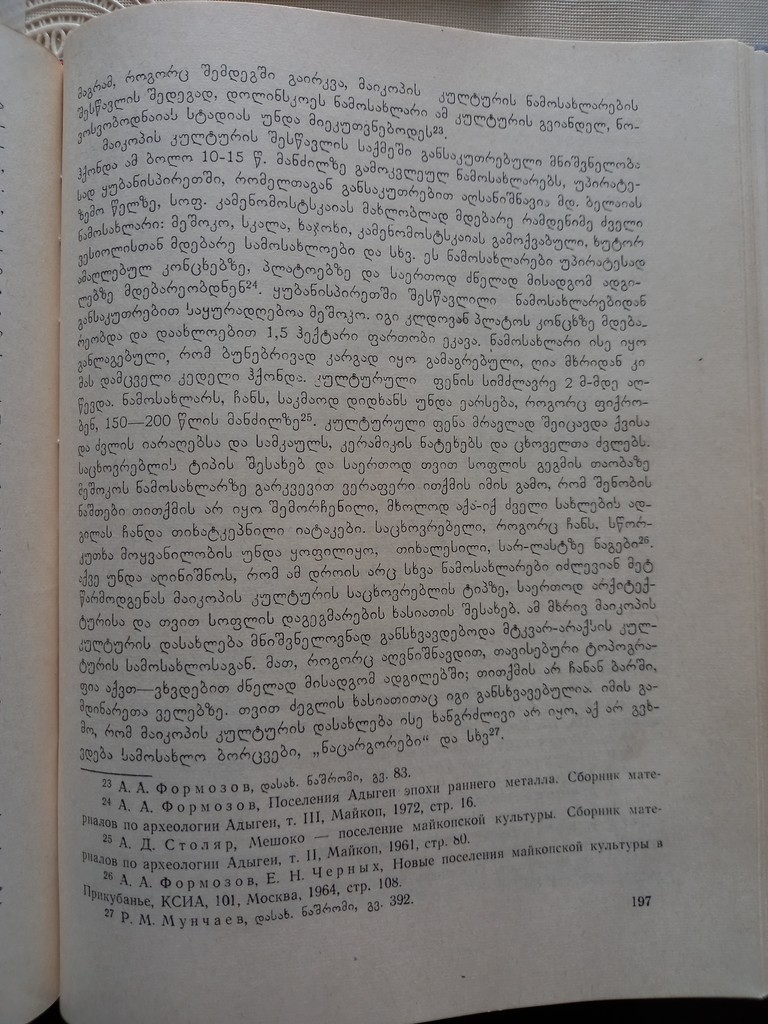 მაგრამ, როგორც შემდეგში გაირკვა, მაიკოპის კულტურის ნამოსახლარების
შესწავლის შედეგად, დოლინსკოეს ნამოსახლარი ამ კულტურის გვიანდელ, ნო-
ვოსვობოდნაიას სტადიას უნდა მიეკუთვნებოდეს²³.
მაიკოპის კულტურის შესწავლის საქმეში განსაკუთრებული მნიშვნელობა
ჰქონდა ამ ბოლო 10-15 წ. მანძილზე გამოკვლეულ ნამოსახლარებს, უპირატე-
სად ყუბანისპირეთში, რომელთაგან განსაკუთრებით აღსანიშნავია მდ. ბელაიას
ზემო წელზე, სოფ. კამენომოსტსკაიას მახლობლად მდებარე რამდენიმე ძველი
ნამოსახლარი: მეშოკო, სკალა, ხაჯოხი, კამენომოსტსკაიას გამოქვაბული, ხუტორ
ვესიოლისთან მდებარე სამოსახლოები და სხვ. ეს ნამოსახლარები უპირატესად
ამაღლებულ კონცხებზე, პლატოებზე და საერთოდ ძნელად მისადგომ ადგი-
ლებზე მდებარეობდნენ²⁴. ყუბანისპირეთში შესწავლილი ნამოსახლარებიდან
განსაკუთრებით საყურადღებოა მეშოკო. იგი კლდოვან პლატოს კონცხზე მდება-
რეობდა და დაახლოებით 1,5 ჰექტარი ფართობი ეკავა. ნამოსახლარი ისე იყო
განლაგებული, რომ ბუნებრივად კარგად იყო გამაგრებული, ღია მხრიდან კი
მას დამცველი კედელი ჰქონდა. კულტურული ფენის სიმძლავრე 2 მ-მდე აღ-
წევდა. ნამოსახლარს, ჩანს, საკმაოდ დიდხანს უნდა ეარსება, როგორც ფიქრო-
ბენ, 150—200 წლის მანძილზე²⁵. კულტურული ფენა მრავლად შეიცავდა ქვისა
და ძვლის იარაღებსა და სამკაულს, კერამიკის ნატეხებს და ცხოველთა ძვლებს.
საცხოვრებლის ტიპის შესახებ და საერთოდ თვით სოფლის გეგმის თაობაზე
მეშოკოს ნამოსახლარზე გარკვევით ვერაფერი ითქმის იმის გამო, რომ შენობის
ნაშთები თითქმის არ იყო შემორჩენილი, მხოლოდ აქა-იქ ძველი სახლების ად-
გილას ჩანდა თიხატკეპნილი იატაკები. საცხოვრებელი, როგორც ჩანს, სწორ-
კუთხა მოყვანილობის უნდა ყოფილიყო, თიხალესილი, სარ-ლასტზე ნაგები²⁶.
აქვე უნდა აღინიშნოს, რომ ამ დროის არც სხვა ნამოსახლარები იძლევიან მეტ
წარმოდგენას მაიკოპის კულტურის საცხოვრებლის ტიპზე, საერთოდ არქიტექ-
ტურისა და თვით სოფლის დაგეგმარების ხასიათის შესახებ. ამ მხრივ მაიკოპის
კულტურის დასახლება მნიშვნელოვნად განსხვავდებოდა მტკვარ-არაქსის კულ-
ტურის სამოსახლოსაგან. მათ, როგორც აღვნიშნავდით, თავისებური ტოპოგრა-
ფია აქვთ—ვხვდებით ძნელად მისადგომ ადგილებში; თითქმის არ ჩანან ბარში,
მდინარეთა ველებზე. თვით ძეგლის ხასიათითაც იგი განსხვავებულია. იმის გა-
მო, რომ მაიკოპის კულტურის დასახლება ისე ხანგრძლივი არ იყო, აქ არ გვხ-
ვდება სამოსახლო ბორცვები, „ნაცარგორები“ და სხვ²⁷.
²³ А. А. Формозов, დასახ. ნაშრომი, გვ. 83.
²⁴ А. А. Формозов, Поселения Адыгеи эпохи раннего металла. Сборник мате-
риалов по археологии Адыгеи, т. III, Майкоп, 1972, стр. 16.
²⁵ А. Д. Столяр, Мешоко — поселение майкопской культуры. Сборник мате-
риалов по археологии Адыгеи, т. II, Майкоп, 1961, стр. 80.
²⁶ А. А. Формозов, Е. Н. Черных, Новые поселения майкопской культуры в
Прикубанье, КСИА, 101, Москва, 1964, стр. 108.
²⁷ Р. М. Мунчаев, დასახ. ნაშრომი, გვ. 392.
197